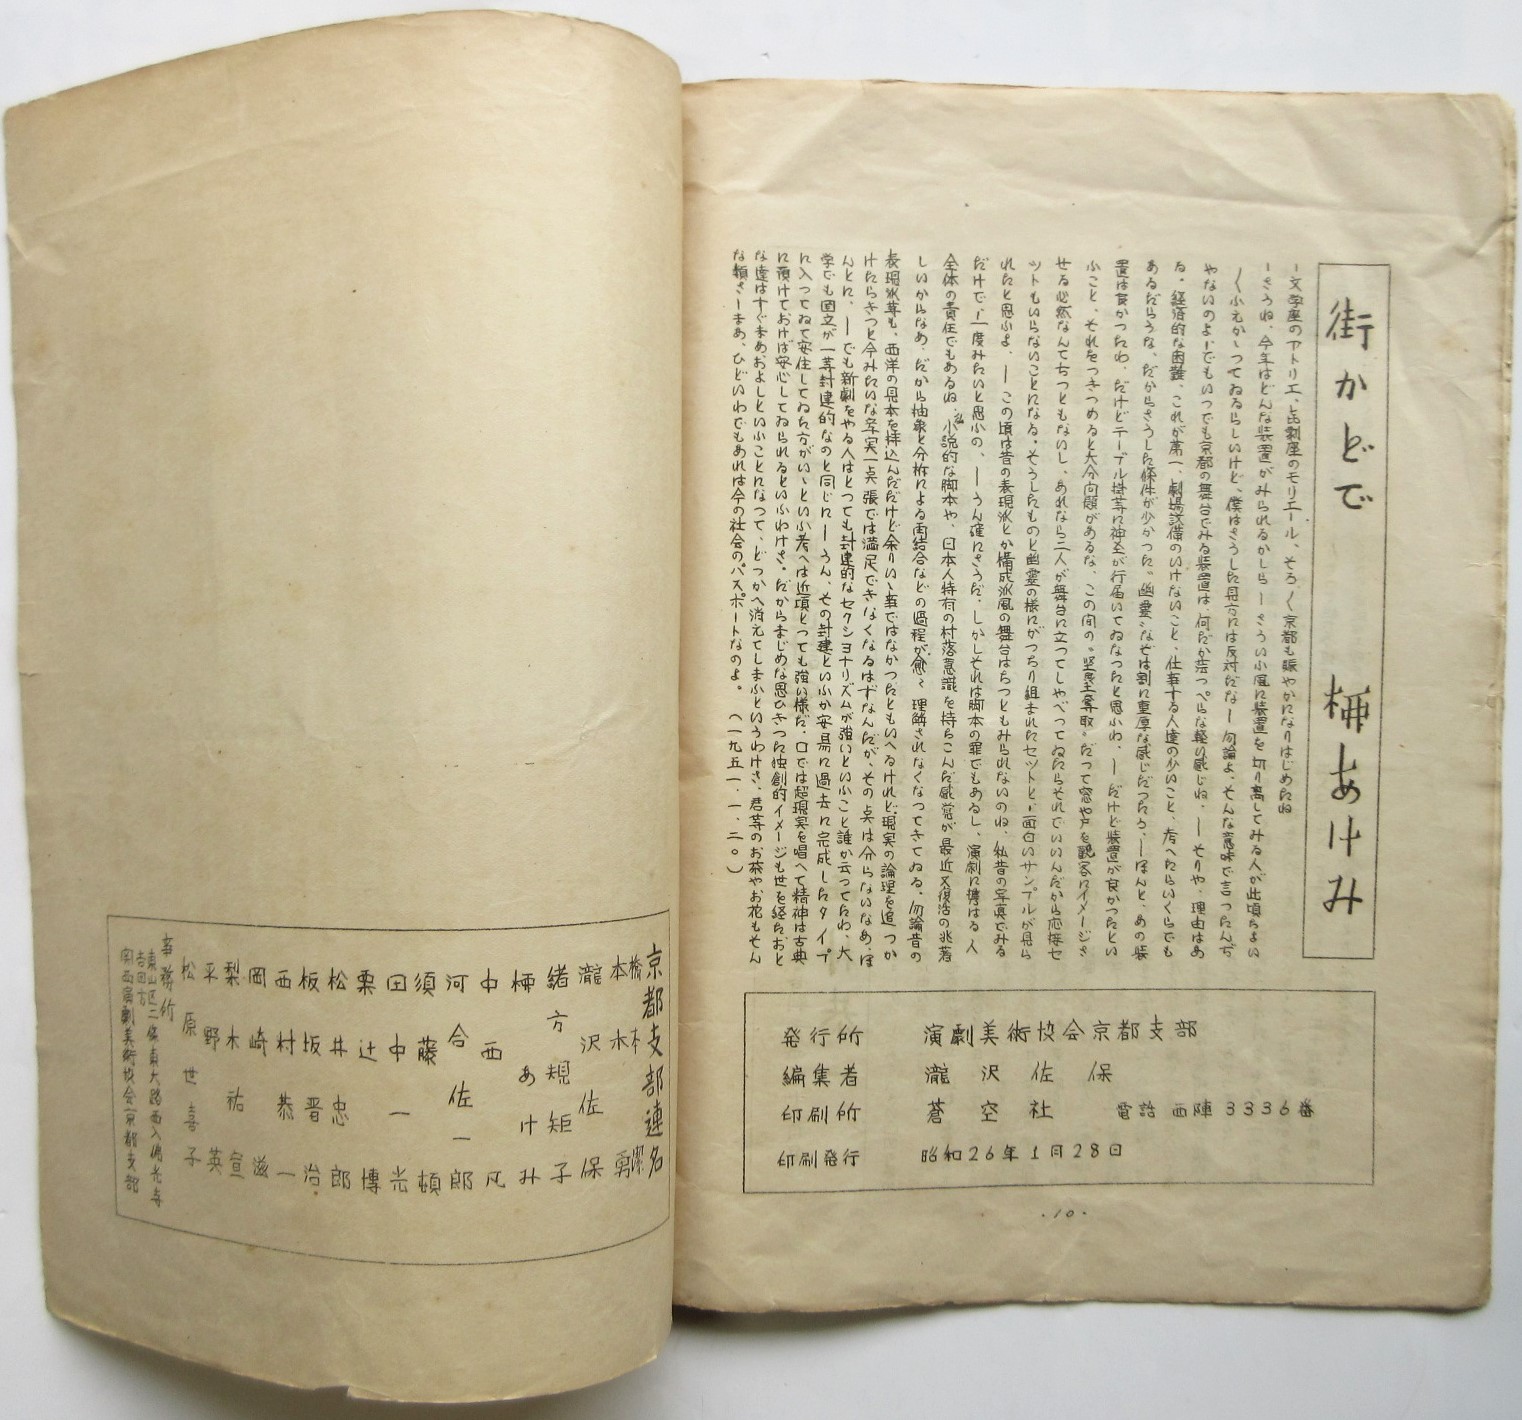 街かどで　柳あけみ
ー文学座のアトリエ、毛剝座のモリエール、そろ〱京都も賑やかになりはじめたね
ーさうね、今年はどんな装置がみられるかしらーさういふ風に装置を切り離してみる人が此頃ちよい
〱ふえかゝつてゐるらしいけど、僕はさうした見方には反対だなー勿論よ、そんな意味で言つたんぢ
やないのよ、でもいつでも京都の舞台でみる装置は、何だか薄つぺらな軽い感じね、ーそりや、理由はあ
る。経済的な困難、これが第一、劇場設備のいけないこと、仕事する人達の少いこと、考へたらいくらでも
あるだらうな、だからさうした條件が少かつた〝幽霊〟なぞは割に重厚な感じだつたろ、ーほんと、あの装
置は良かつたわ、だけどテーブル掛等に神至が行届いてゐなつたと思ふわ、ーだけど装置が良かつたとい
ふこと、それをつきつめると大分問題があるな、この間の〝堅塁奪取〟だつて窓や戸を観客にイメージさ
せる必然なんてちつともないし、あれなら二人が舞台に立つてしやべつてゐたらそれでいいんだから応接セ
ツトもいらないことになる。そうしたものと幽霊の様にがつちり組まれたセツトと、面白いサンプルが見ら
れたと思ふよ、ーこの頃は昔の表現派とか構成派風の舞台はちつともみられないのね、私昔の写真でみる
だけで、一度みたいと思ふの、ーうん確にさうだ、しかしそれは脚本の罪でもあるし、演劇に携はる人
全体の責任でもあるね、私小説的な脚本や、日本人特有の村落意識を持ちこんだ感覚が最近又復活の兆著
しいからなあ、だから抽象と分析による再結合などの過程が愈〻理解されなくなつてきてゐる。勿論昔の
表現派等も、西洋の見本を拝込んだだけど余りいゝ事ではなかつたともいへるけれど、現実の論理を追つか
けたらきつと今みたいな写実一点張では満足できなくなるはずなんだが、その点は分らないなあ、ほ
んとに、ーでも新劇をやる人はとつても封建的なセクシヨナリズムが強いといふこと誰か云つてたわ、大
学でも国立が一等封建的なのと同じにーうん、その封建といふか安易に過去に完成したタイプ
に入つてゐて安住してゐた方がいゝといふ考へは近頃とつても強い様だ。口では超現実を唱へて精神は古典
に預けておけば安心してゐられるといふわけさ。だからまじめな思ひきつた独創的イメージも世を経たおと
な達はすぐまあおよしといふことになつて、どつかへ消えてしまふというわけさ、君等のお茶やお花もそん
な類さーまあ、ひどいわでもあれは今の社会のパスポートなのよ。（一九五一・一・二〇）
発行所　演劇美術協会京都支部
編集者　瀧沢佐保
印刷所　蒼空社　電話 西陣 3336番
印刷発行　昭和26年1月28日
・10・
京都支部連名
橋本　潔
本木　勇
瀧沢佐保
緒方規矩子
柳あけみ
中西　凡
河合佐一郎
須藤　頓
田中一光
栗辻　博
松井忠郎
板坂晋治
西村恭一
岡崎　滋
梨木祐宣
平野　英
松原世喜子
事務所
東山区二條東大路西入傳光寺
吉田方
関西演劇美術協会京都支部